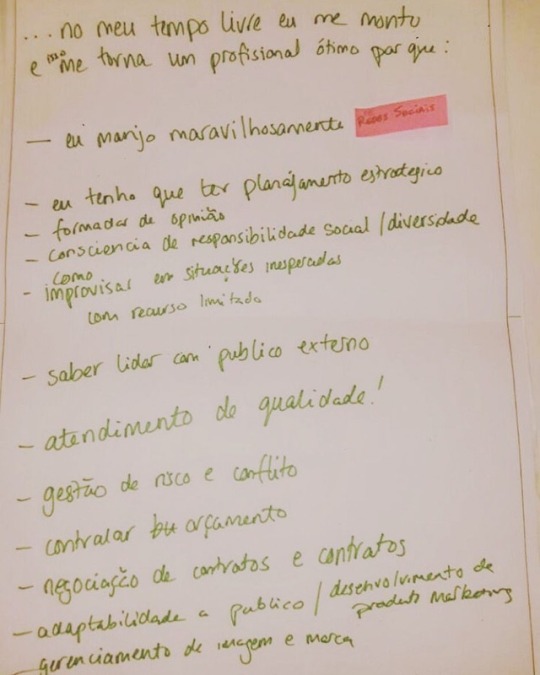 ... no meu tempo livre eu me monto
e isso me torna um profisional ótimo por que:
— eu manjo maravilhosamente Redes Sociais
— eu tenho que ter planajamento estrategico
— formador de opinião
— consciencia de responsibilidade social / diversidade
como
- improvisar em situações inesperadas
com recurso limitado
— saber lidar com publico externo
— atendimento de qualidade!
— gestão de risco e conflito
— contralar orçamento
— negociação de contratos e contratos
— adaptabilidade a publico / desenvolvimento de
produto Marketing
— gerenciamento de imagem e marca